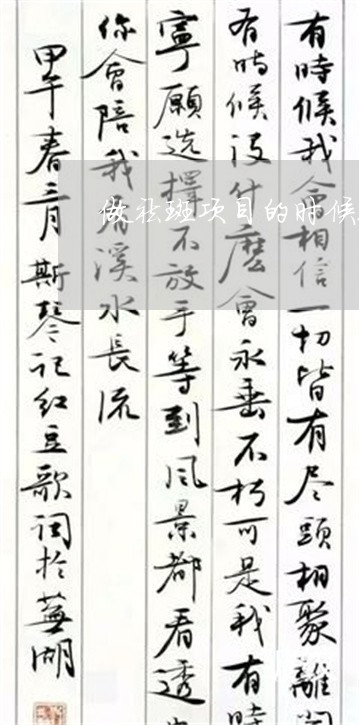 有時候我会相信一切皆有尽頭相聚離開
有時候没什麽會永垂不朽可是我有時
寧願选擇不放手等到风景都看透
你會陪我看溪水長流
甲午春三月斯琴记红豆歌词於蕪湖
做祛斑项目的时候